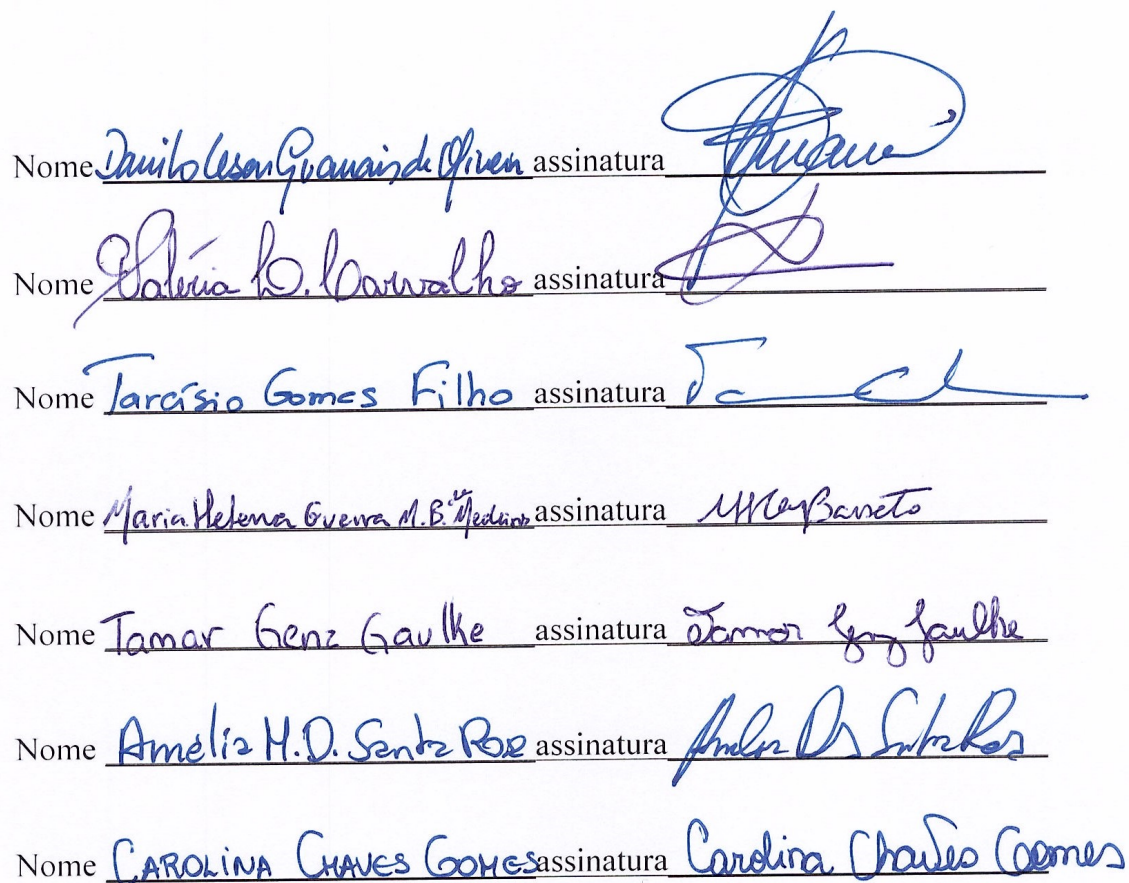 Nome Danilo Cesar Guanais de Oliveira assinatura
Nome Valéria L. Carvalho assinatura
Nome Tarcísio Gomes Filho assinatura
Nome Maria Helena Guerra M. B. de Medeiros assinatura MHGMBarreto
Nome Tamar Genz Gaulke assinatura Tamar Genz Gaulke
Nome Amélia M.D. Santa Rosa assinatura Amelia DS Santa Rosa
Nome CAROLINA CHAVES GOMES assinatura Carolina Chaves Gomes